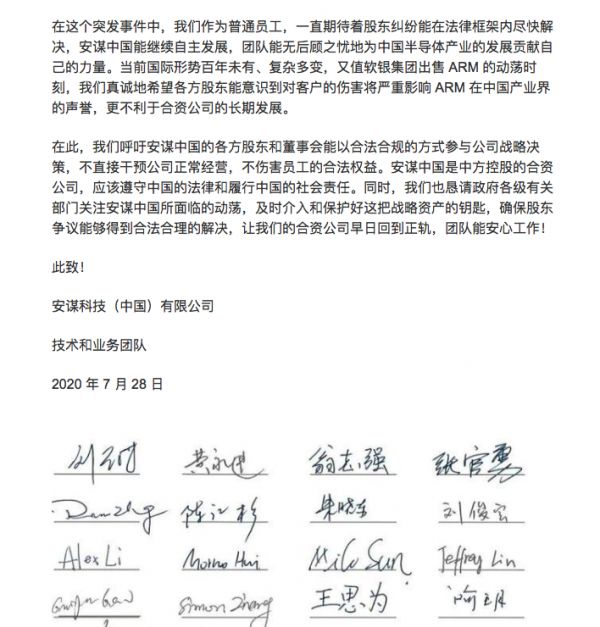 在这个突发事件中，我们作为普通员工，一直期待着股东纠纷能在法律框架内尽快解
决，安谋中国能继续自主发展，团队能无后顾之忧地为中国半导体产业的发展贡献自
己的力量。当前国际形势百年未有、复杂多变，又值软银集团出售 ARM 的动荡时
刻，我们真诚地希望各方股东能意识到对客户的伤害将严重影响 ARM 在中国产业界
的声誉，更不利于合资公司的长期发展。
在此，我们呼吁安谋中国的各方股东和董事会能以合法合规的方式参与公司战略决
策，不直接干预公司正常经营，不伤害员工的合法权益。安谋中国是中方控股的合资
公司，应该遵守中国的法律和履行中国的社会责任。同时，我们也恳请政府各级有关
部门关注安谋中国所面临的动荡，及时介入和保护好这把战略资产的钥匙，确保股东
争议能够得到合法合理的解决，让我们的合资公司早日回到正轨，团队能安心工作！
此致！
安谋科技（中国）有限公司
技术和业务团队
2020 年 7 月 28 日
翁志强 张官勇
朱晓东 刘俊宏
Alex Li Milo Sun Jeffrey Lin
Simon Zhang 王思为